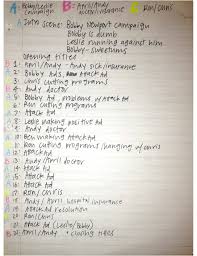 A: Bobby/Leslie campaign B: April/Andy doctor/insurance C: Ron/Chris
A Intro scene: Bobby Newport campaign
Bobby is dumb
Leslie running against him
Bobby - sweetums
Opening titles
B 1: April/Andy - Andy sick/insurance
A 2: Bobby Ads, Attack Ad
C 3: Chris cutting programs
B 4: Andy doctor
A 5: Bobby Ad, problems of Attack Ad
C 6: Ron cutting programs
B 7: Andy doctor
A 8: Leslie making positive Ad
B 9: Andy doctor
A 10: Ben Attack Ad
C 11: Ron cutting programs/hanging w/ Chris
A 12: Attack Ad
B 13: Andy/April doctor
A 14: Attack Ad
A 15: Attack Ad
A 16: Attack Ad
C 17: Ron/Chris
B 18: Andy/April hospital insurance
A 19: Attack Ad resolution
C 20: Ron/Chris
A 21: Attack Ad (Leslie/Bobby)
B 22: April/Andy + closing titles